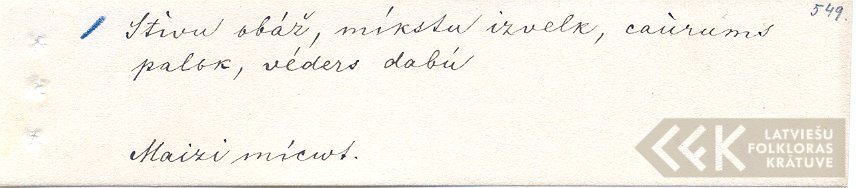 549.
Stìvu obáž, míkstu izvelk, caùrums
palok, véders dabú
Maizi mícwt.
LATVIEŠU
FOLKLORAS
KRĀTUVE